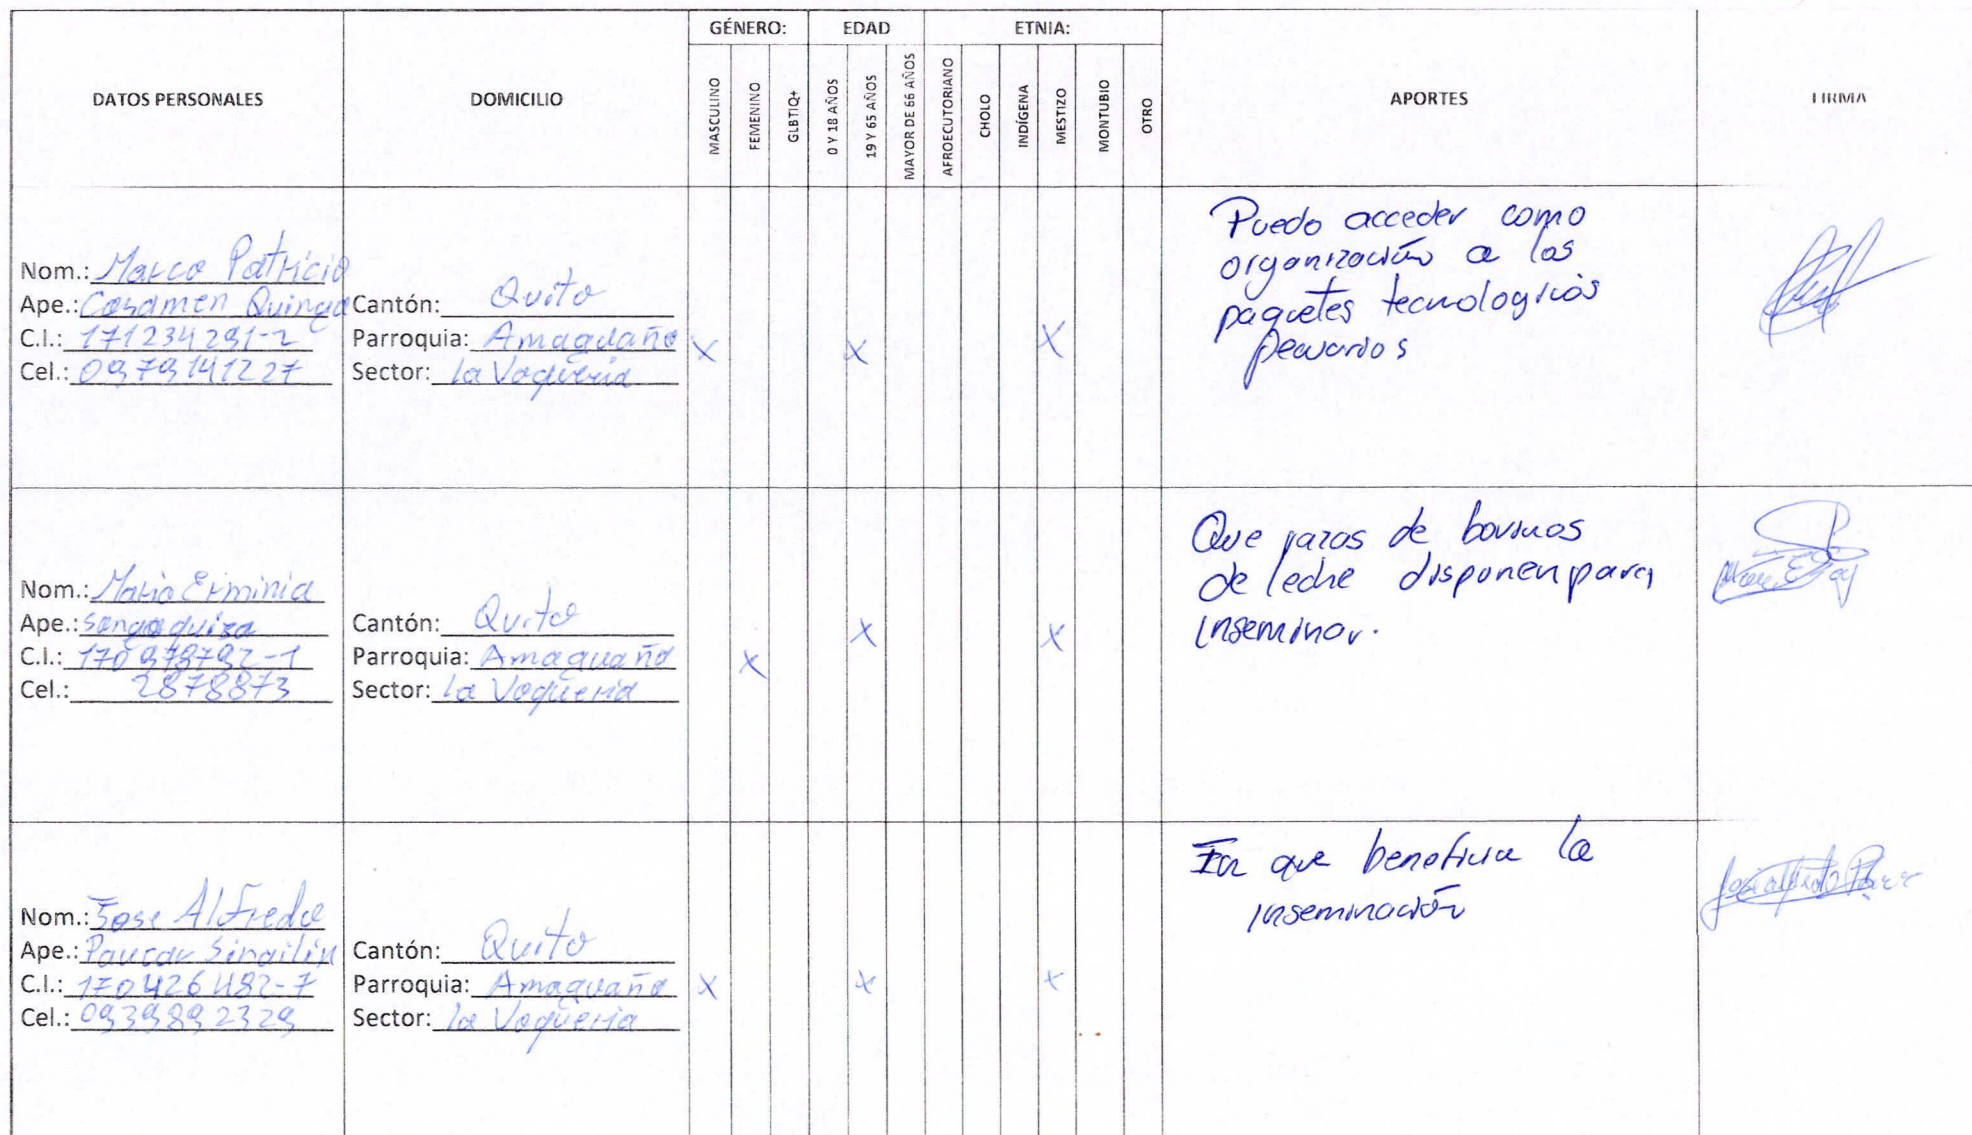 GÉNERO: EDAD ETNIA:
DATOS PERSONALES DOMICILIO MASCULINO FEMENINO GLBTIQ+ 0 Y 18 AÑOS 19 Y 65 AÑOS MAYOR DE 66 AÑOS AFROECUTORIANO CHOLO INDÍGENA MESTIZO MONTUBIO OTRO APORTES FIRMA
Nom.: Marco Patricio
Ape.: Casamen Quinga
C.I.: 171234291-2
Cel.: 0979141227
Cantón: Quito
Parroquia: Amaguaña
Sector: la Voqueria
X X X
Puedo acceder como
organización a los
paquetes tecnologicos
pecuarios
Nom.: Maria Erminia
Ape.: Sangoquiza
C.I.: 170979792-1
Cel.: 2878873
Cantón: Quito
Parroquia: Amaguaña
Sector: La Voqueria
X X X
Que razas de bovinos
de leche disponen para
inseminar.
Nom.: Jose Alfredo
Ape.: Paucar Sinailin
C.I.: 170426482-7
Cel.: 0939892329
Cantón: Quito
Parroquia: Amaguaña
Sector: la Voqueria
X X X
En que beneficia la
inseminación